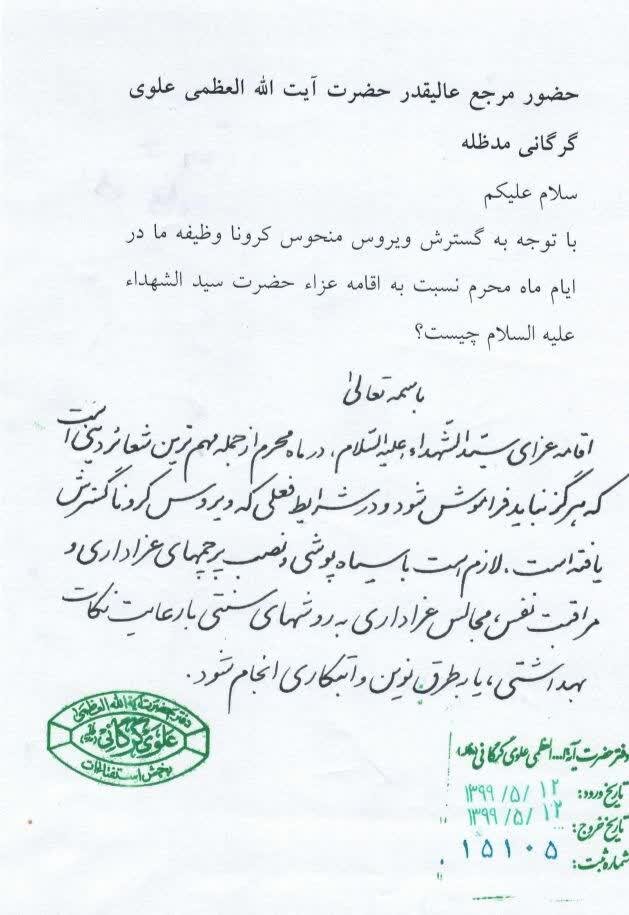 حضور مرجع عالیقدر حضرت آیت الله العظمی علوی
گرگانی مدظله
سلام علیکم
با توجه به گسترش ویروس منحوس کرونا وظیفه ما در
ایام ماه محرم نسبت به اقامه عزاء حضرت سید الشهداء
علیه السلام چیست؟
باسمه تعالیٰ
اقامه عزای سیّدالشّهداء علیه السّلام، در ماه محرم از جمله مهم ترین شعائر دینی است
که هرگز نباید فراموش شود و در شرایط فعلی که ویروس کرونا گسترش
یافته است، لازم است با سیاه پوشی و نصب پرچمهای عزاداری و
مراقبت نفس، مجالس عزاداری به روشهای سنتی با رعایت نکات
بهداشتی، یا به طرق نوین و ابتکاری انجام شود.
دفتر حضرت آیة الله العظمی
علوی گرگانی
بخش استفتائات
دفتر حضرت آیة ا... العظمی علوی گرگانی
تاریخ ورود: ۱۳۹۹/۵/۱۲
تاریخ خروج: ۱۳۹۹/۵/۱۲
شماره ثبت: ۱۵۱۰۵